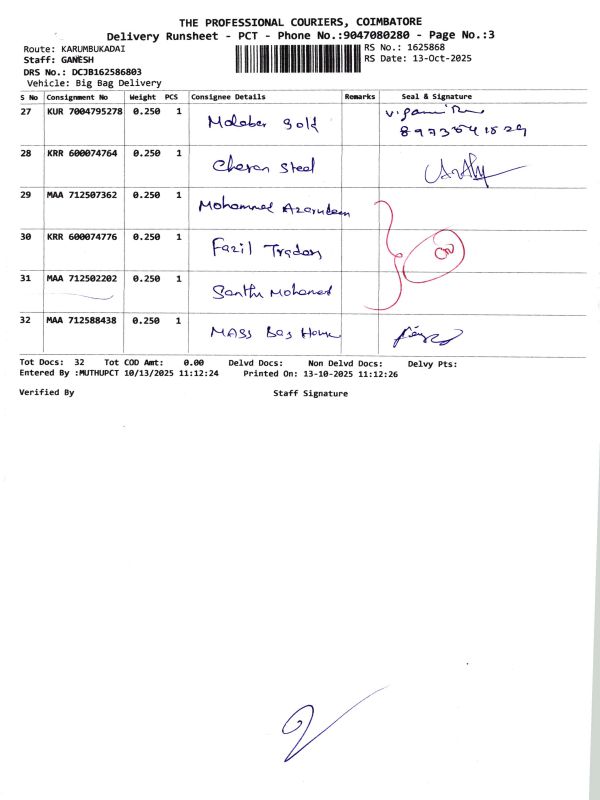 THE PROFESSIONAL COURIERS, COIMBATORE
Delivery Runsheet - PCT - Phone No.:9047080280 - Page No.:3
Route: KARUMBUKADAI
RS No.: 1625868
Staff: GANESH
RS Date: 13-Oct-2025
DRS No.: DCJB162586803
Vehicle: Big Bag Delivery
S No Consignment No Weight PCS Consignee Details Remarks Seal & Signature
27 KUR 7004795278 0.250 1 Malabar Gold
8973541829
28 KRR 600074764 0.250 1 Cheran Steel
29 MAA 712507362 0.250 1 Mohammed Azarudeen
30 KRR 600074776 0.250 1 Fazil Traders
31 MAA 712502202 0.250 1 Mohamed
32 MAA 712588438 0.250 1 MASS Bag
Tot Docs: 32 Tot COD Amt: 0.00 Delvd Docs: Non Delvd Docs: Delvy Pts:
Entered By :MUTHUPCT 10/13/2025 11:12:24 Printed On: 13-10-2025 11:12:26
Verified By Staff Signature